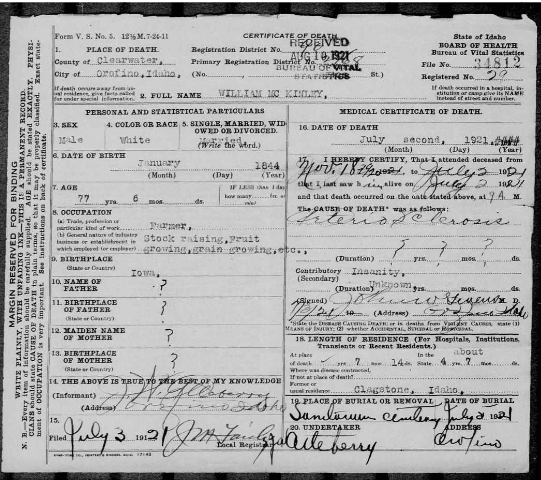 Form V. S. No. 5. 12½M. 7-24-11
CERTIFICATE OF DEATH
State of Idaho
BOARD OF HEALTH
Bureau of Vital Statistics
RECEIVED
AUG 10 1921
BUREAU OF VITAL
STATISTICS
1. PLACE OF DEATH
Registration District No.
County of Clearwater,
Primary Registration District No.
File No. 34812
City of Orofino, Idaho, (No. St.)
Registered No. 29
If death occurs away from usual residence, give facts called for under special information.
2. FULL NAME WILLIAM MC KINLEY,
If death occurred in a hospital, institution or camp give its NAME instead of street and number.
PERSONAL AND STATISTICAL PARTICULARS
3. SEX Male
4. COLOR OR RACE White
5. SINGLE, MARRIED, WIDOWED OR DIVORCED. Married
(Write the word.)
6. DATE OF BIRTH
January 1844
(Month) (Day) (Year)
7. AGE
77 yrs. 6 mos. ds.
8. OCCUPATION
(a) Trade, profession or particular kind of work Farmer,
(b) General nature of industry business or establishment in which employed (or employer) Stock raising, Fruit growing, grain growing, etc.,
9. BIRTHPLACE
(State or Country) Iowa,
10. NAME OF FATHER ?
11. BIRTHPLACE OF FATHER ?
(State or Country)
12. MAIDEN NAME OF MOTHER ?
13. BIRTHPLACE OF MOTHER ?
(State or Country)
14. THE ABOVE IS TRUE TO THE BEST OF MY KNOWLEDGE
(Informant)
(Address) Orofino Idaho
15.
Filed July 3 1921
Local Registrar
MEDICAL CERTIFICATE OF DEATH
16. DATE OF DEATH
July second, 1921,
(Month) (Day) (Year)
17. I HEREBY CERTIFY, That I attended deceased from
Nov. 18 to July 2 1921
that I last saw him alive on July 2 1921
and that death occurred on the date stated above, at 9 A M.
The CAUSE OF DEATH* was as follows:
Arterio Sclerosis
(Duration) ? yrs. ? mos. ? ds.
Contributory Insanity,
(Secondary)
(Duration) Unknown, yrs. mos. ds.
(Signed)
(Address) Orofino Idaho
*State the DISEASE CAUSING DEATH or in deaths from VIOLENT CAUSES, state (1) MEANS OF INJURY; (2) whether ACCIDENTAL, SUICIDAL or HOMICIDAL
18. LENGTH OF RESIDENCE (For Hospitals, Institutions, Transients or Recent Residents.)
At place of death yrs. 7 mos. 14 ds. In the State about 4 yrs. 7 mos. ds.
Where was disease contracted,
If not at place of death?
Former or usual residence Clagstone, Idaho,
19. PLACE OF BURIAL OR REMOVAL DATE OF BURIAL
Sanitarium July 2 1921
20. UNDERTAKER ADDRESS
Orofino
MARGIN RESERVED FOR BINDING
WRITE PLAINLY, WITH UNFADING INK—THIS IS A PERMANENT RECORD.
N. B.—Every item of information should be carefully supplied. AGE should be stated EXACTLY. PHYSICIANS should state CAUSE OF DEATH in plain terms, so that it may be properly classified. Exact statement of OCCUPATION is very important. See instructions on back of certificate.